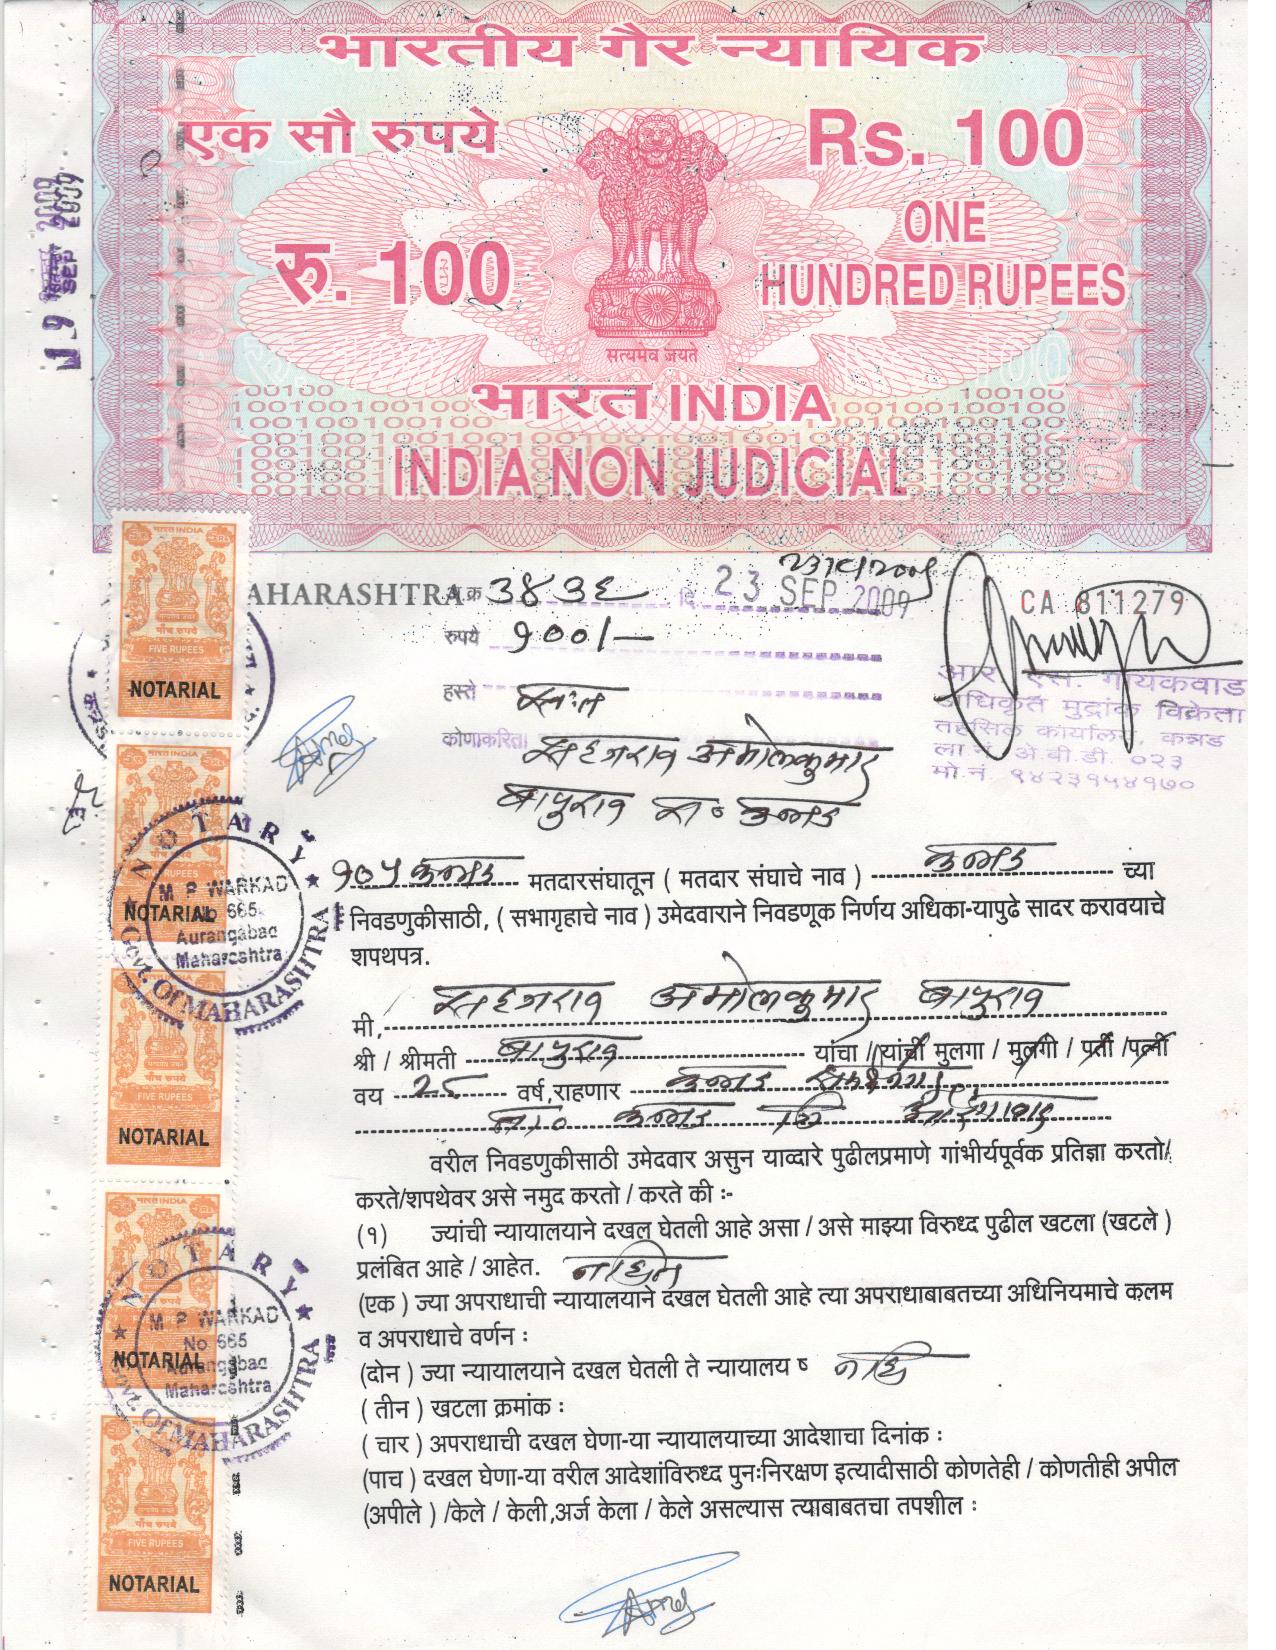 भारतीय गैर न्यायिक
एक सौ रुपये
Rs. 100
रु. 100
ONE
HUNDRED RUPEES
सत्यमेव जयते
भारत INDIA
INDIA NON JUDICIAL
SEP 2009
AHARASHTRA
अ.क्र ३४३६ दि 23 SEP 2009
CA 811279
रुपये १००/-
हस्ते स्वःत
कोणाकरिता सहजराव अमोलकुमार
बापुराव रा० कन्नड
आर. एस. गायकवाड
अधिकृत मुद्रांक विक्रेता
तहसिल कार्यालय, कन्नड
ला.नं. अे.बी.डी. ०२३
मो.नं. ९४२३१५४१७०
भारत INDIA
पाँच रुपये
FIVE RUPEES
NOTARIAL
FIVE RUPEES
NOTARIAL
NOTARY
M P WARKAD
No 665
Aurangabad
Maharashtra
Govt. Of MAHARASHTRA
पाँच रुपये
FIVE RUPEES
NOTARIAL
भारत INDIA
NOTARIAL
NOTARY
M P WARKAD
No 665
Aurangabad
Maharashtra
Govt. Of MAHARASHTRA
पाँच रुपये
FIVE RUPEES
NOTARIAL
१०५ कन्नड मतदारसंघातून ( मतदार संघाचे नाव ) कन्नड च्या
निवडणुकीसाठी, ( सभागृहाचे नाव ) उमेदवाराने निवडणूक निर्णय अधिका-यापुढे सादर करावयाचे
शपथपत्र.
मी, सहजराव अमोलकुमार बापुराव
श्री / श्रीमती बापुराव यांचा / यांची मुलगा / मुलगी / पती / पत्नी
वय २८ वर्ष,राहणार कन्नड
ता० कन्नड जि औरंगाबाद
वरील निवडणुकीसाठी उमेदवार असुन याव्दारे पुढीलप्रमाणे गांभीर्यपूर्वक प्रतिज्ञा करतो/
करते/शपथेवर असे नमुद करतो / करते की :-
(१) ज्यांची न्यायालयाने दखल घेतली आहे असा / असे माझ्या विरुध्द पुढील खटला (खटले )
प्रलंबित आहे / आहेत. नाहीत
(एक ) ज्या अपराधाची न्यायालयाने दखल घेतली आहे त्या अपराधाबाबतच्या अधिनियमाचे कलम
व अपराधाचे वर्णन :
(दोन ) ज्या न्यायालयाने दखल घेतली ते न्यायालय ष नाही
( तीन ) खटला क्रमांक :
( चार ) अपराधाची दखल घेणा-या न्यायालयाच्या आदेशाचा दिनांक :
(पाच ) दखल घेणा-या वरील आदेशांविरुध्द पुनःनिरक्षण इत्यादीसाठी कोणतेही / कोणतीही अपील
(अपीले ) /केले / केली,अर्ज केला / केले असल्यास त्याबाबतचा तपशील :